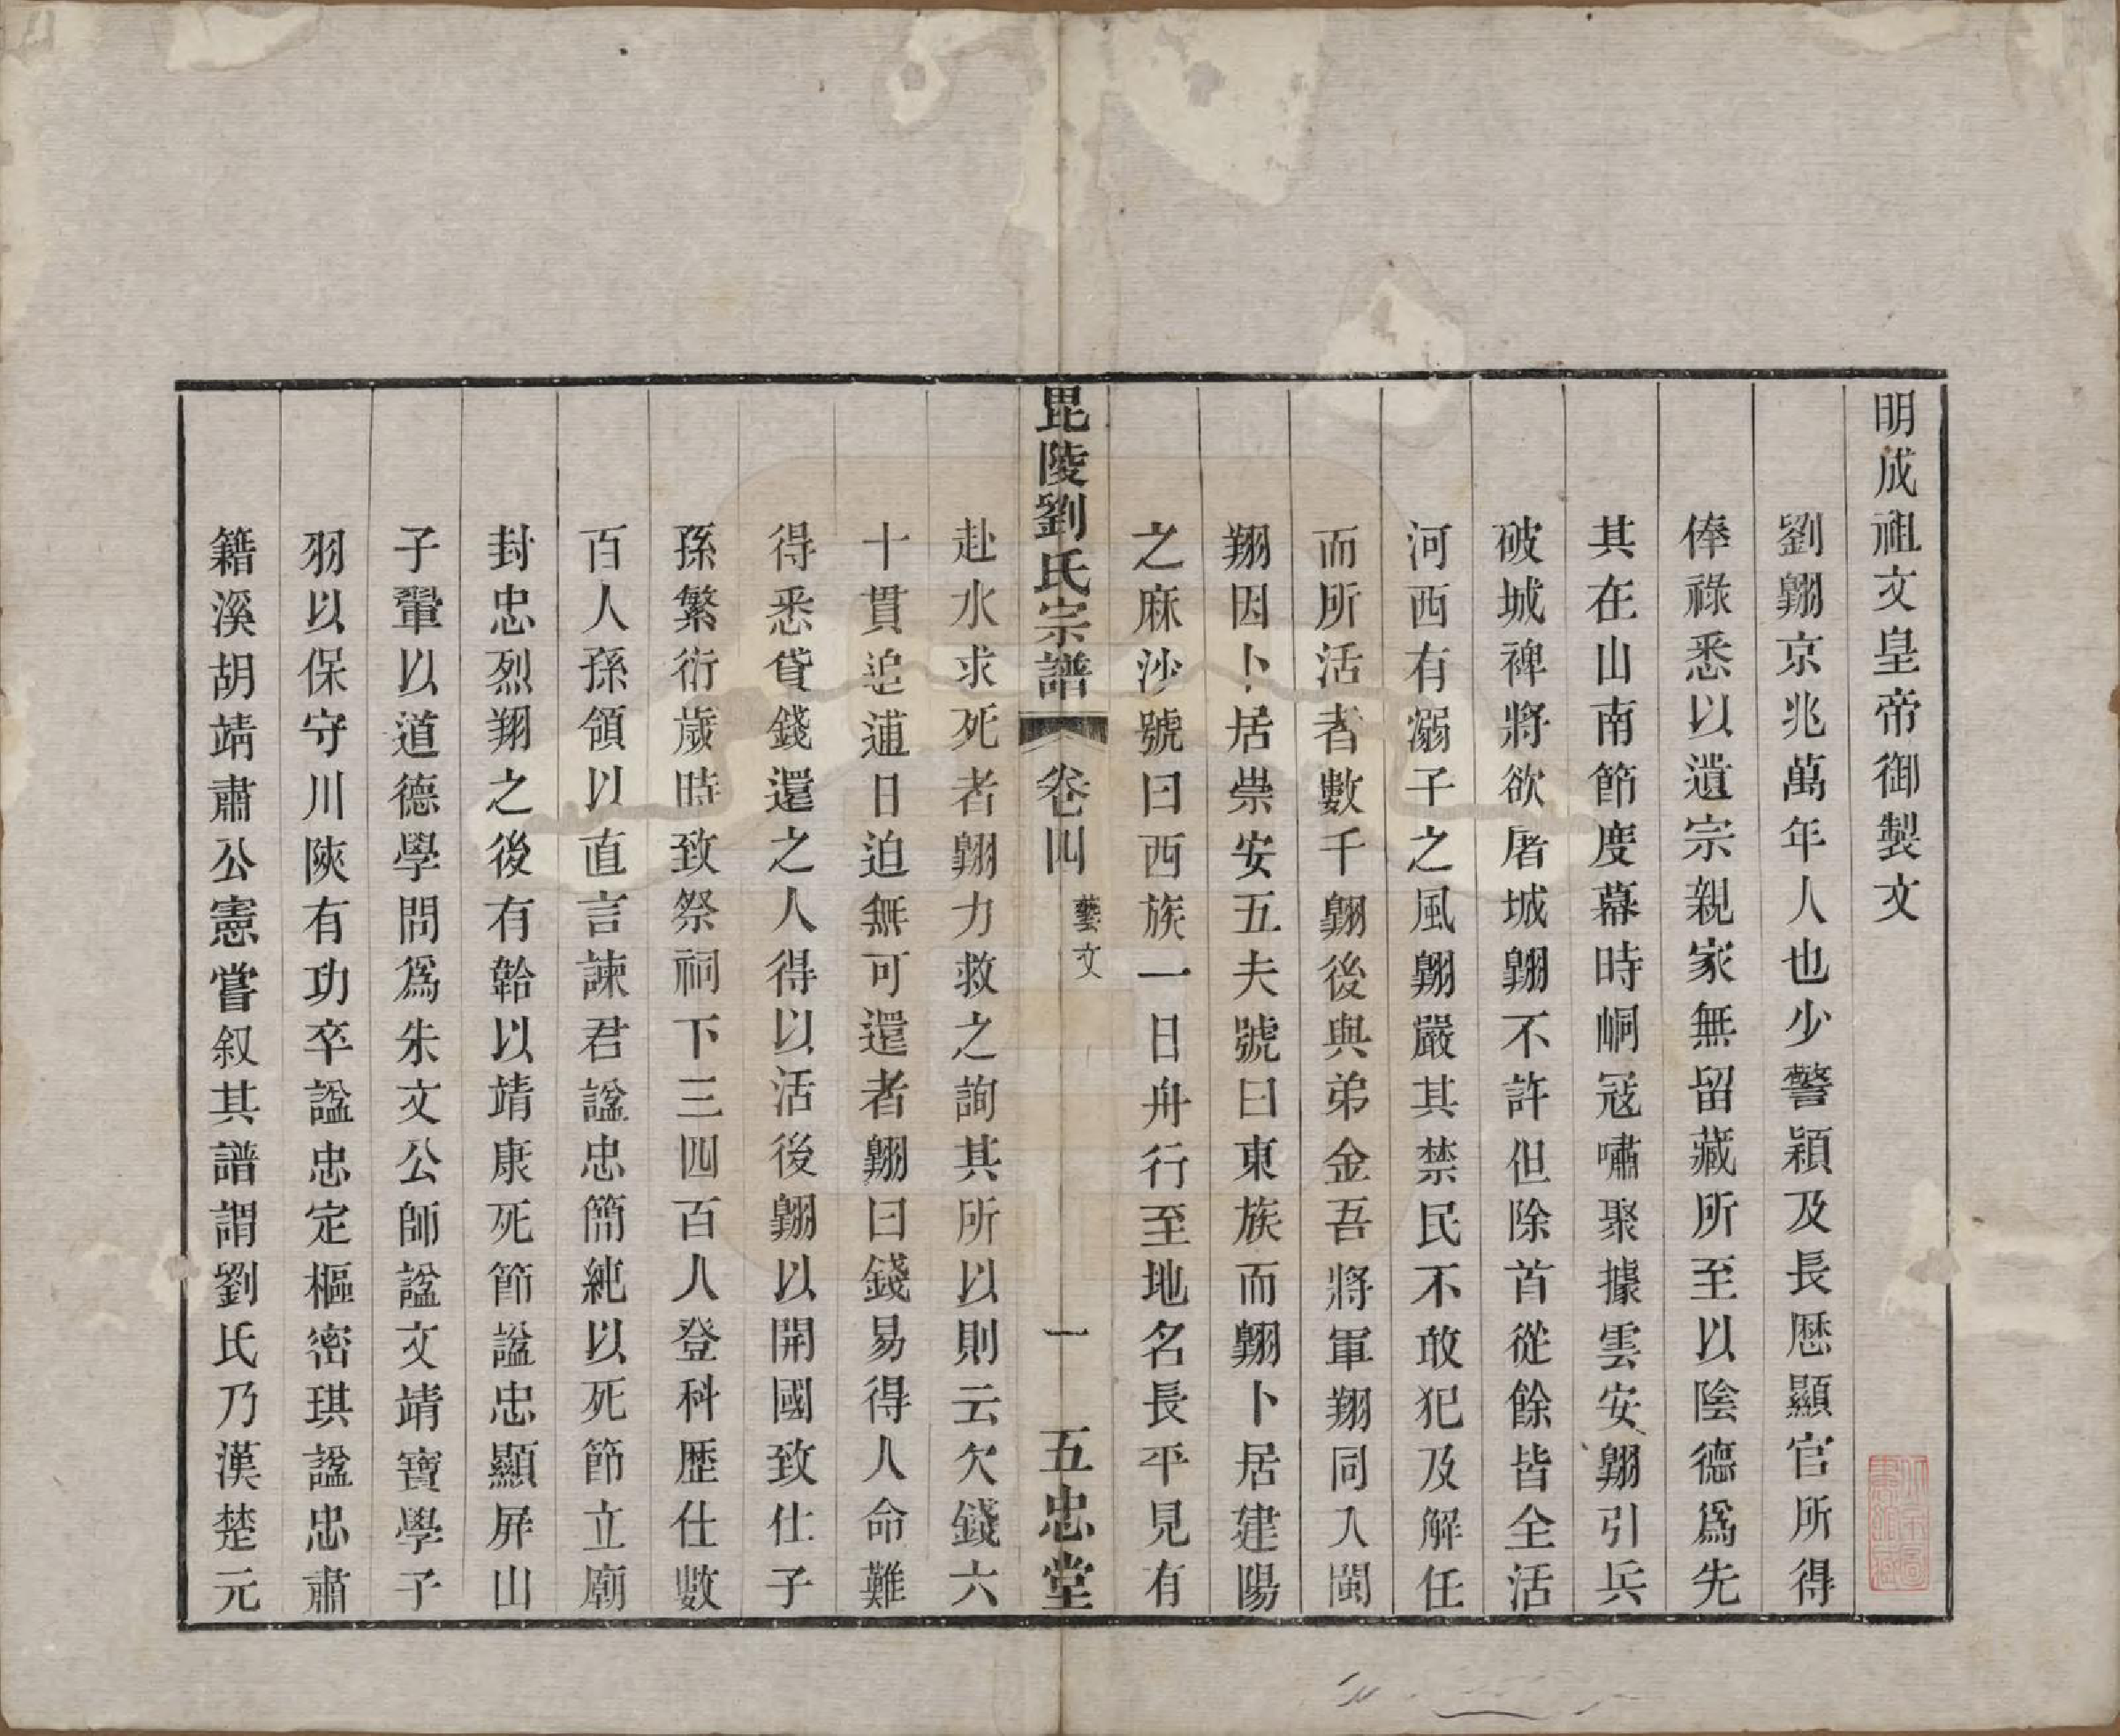 明成祖文皇帝御製文
劉翺京兆萬年人也少警穎及長厯顯官所得
俸祿悉以遺宗親家無留藏所至以陰德爲先
其在山南節度幕時峒冦嘯聚據雲安翺引兵
破城裨將欲屠城翺不許但除首從餘皆全活
河西有溺子之風翺嚴其禁民不敢犯及解任
而所活者數千翺後與弟金吾將軍翔同入閩
翔因卜居崇安五夫號曰東族而翺卜居建陽
之麻沙號曰西族一日舟行至地名長平見有
毘陵劉氏宗譜 卷四 藝文 一 五忠堂
赴水求死者翺力救之詢其所以則云欠錢六
十貫追逋日迫無可還者翺曰錢易得人命難
得悉貸錢還之人得以活後翺以開國致仕子
孫繁衍歲時致祭祠下三四百人登科歷仕數
百人孫領以直言諫君諡忠簡純以死節立廟
封忠烈翔之後有韐以靖康死節諡忠顯屏山
子翬以道德學問爲朱文公師諡文靖寶學子
羽以保守川陝有功卒諡忠定樞密珙諡忠肅
籍溪胡靖肅公憲嘗叙其譜謂劉氏乃漢楚元